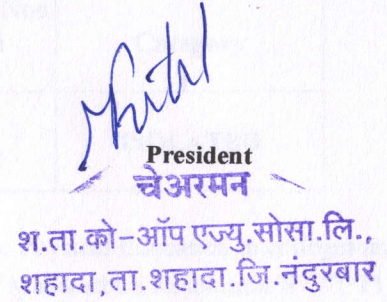 President
चेअरमन
श.ता.को-ऑप एज्यु.सोसा.लि.,
शहादा,ता.शहादा.जि.नंदुरबार